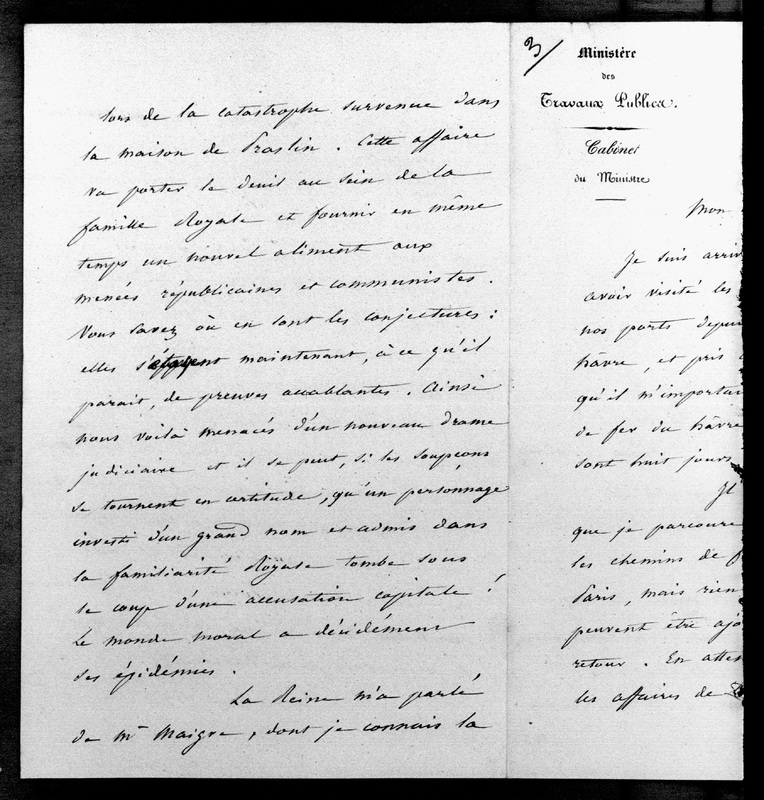 lors de la catastrophe survenue dans
la maison de Praslin. Cette affaire
va porter le deuil au sein de la
famille Royale et fournir en même
temps un nouvel aliment aux
menées républicaines et communistes.
Vous savez où en sont les conjectures :
elles s'étayent maintenant, à ce qu'il
parait, de preuves accablantes. Ainsi
nous voilà menacés d'un nouveau drame
judiciaire et il se peut, si les soupçons
se tournent en certitude, qu'un personnage
investi d'un grand nom et admis dans
la familiarité Royale tombe sous
le coup d'une accusation capitale !
Le monde moral a décidément
ses épidémies.
La Reine m'a parlé
de Mr Maigre, dont je connais la
3/
Ministère
des
Travaux Publics.
Cabinet
du Ministre
Mon
Je suis arriv
avoir visité les
nos ports depui
hâvre, et pris
qu'il m'importai
de fer du hâvre
sont huit jours
Il
que je parcoure
les chemins de f
Paris, mais rien
peuvent être ajo
retour. En atten
les affaires de